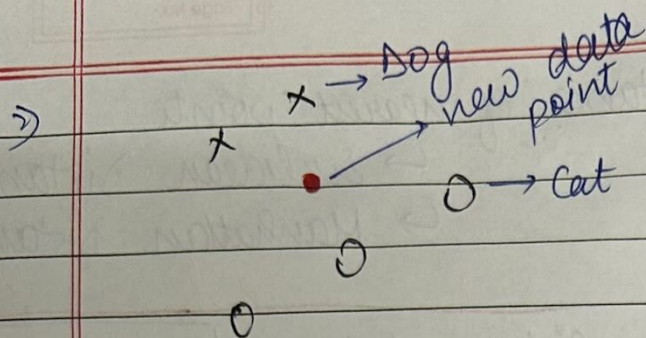 ⇒
x → Dog
x
new data
point
O → Cat
O
O